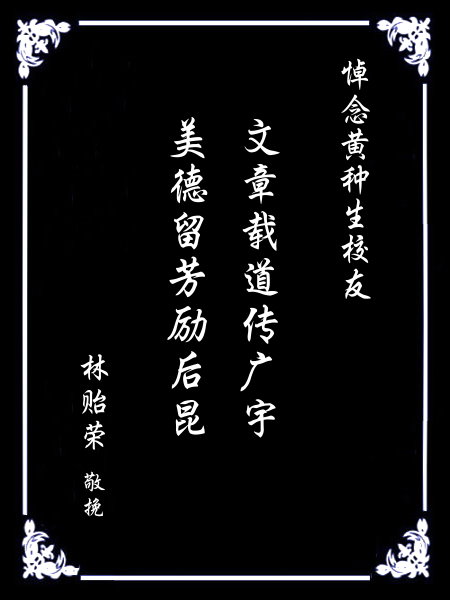 悼念黄种生校友
文章载道传广宇
美德留芳励后昆
林贻荣 敬挽